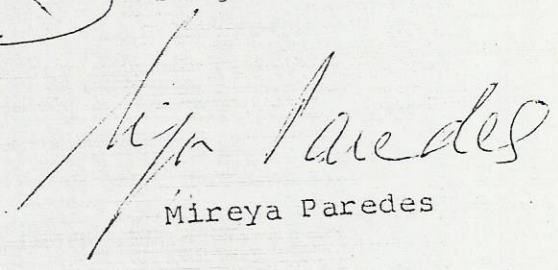 Mireya Paredes
Mireya Paredes